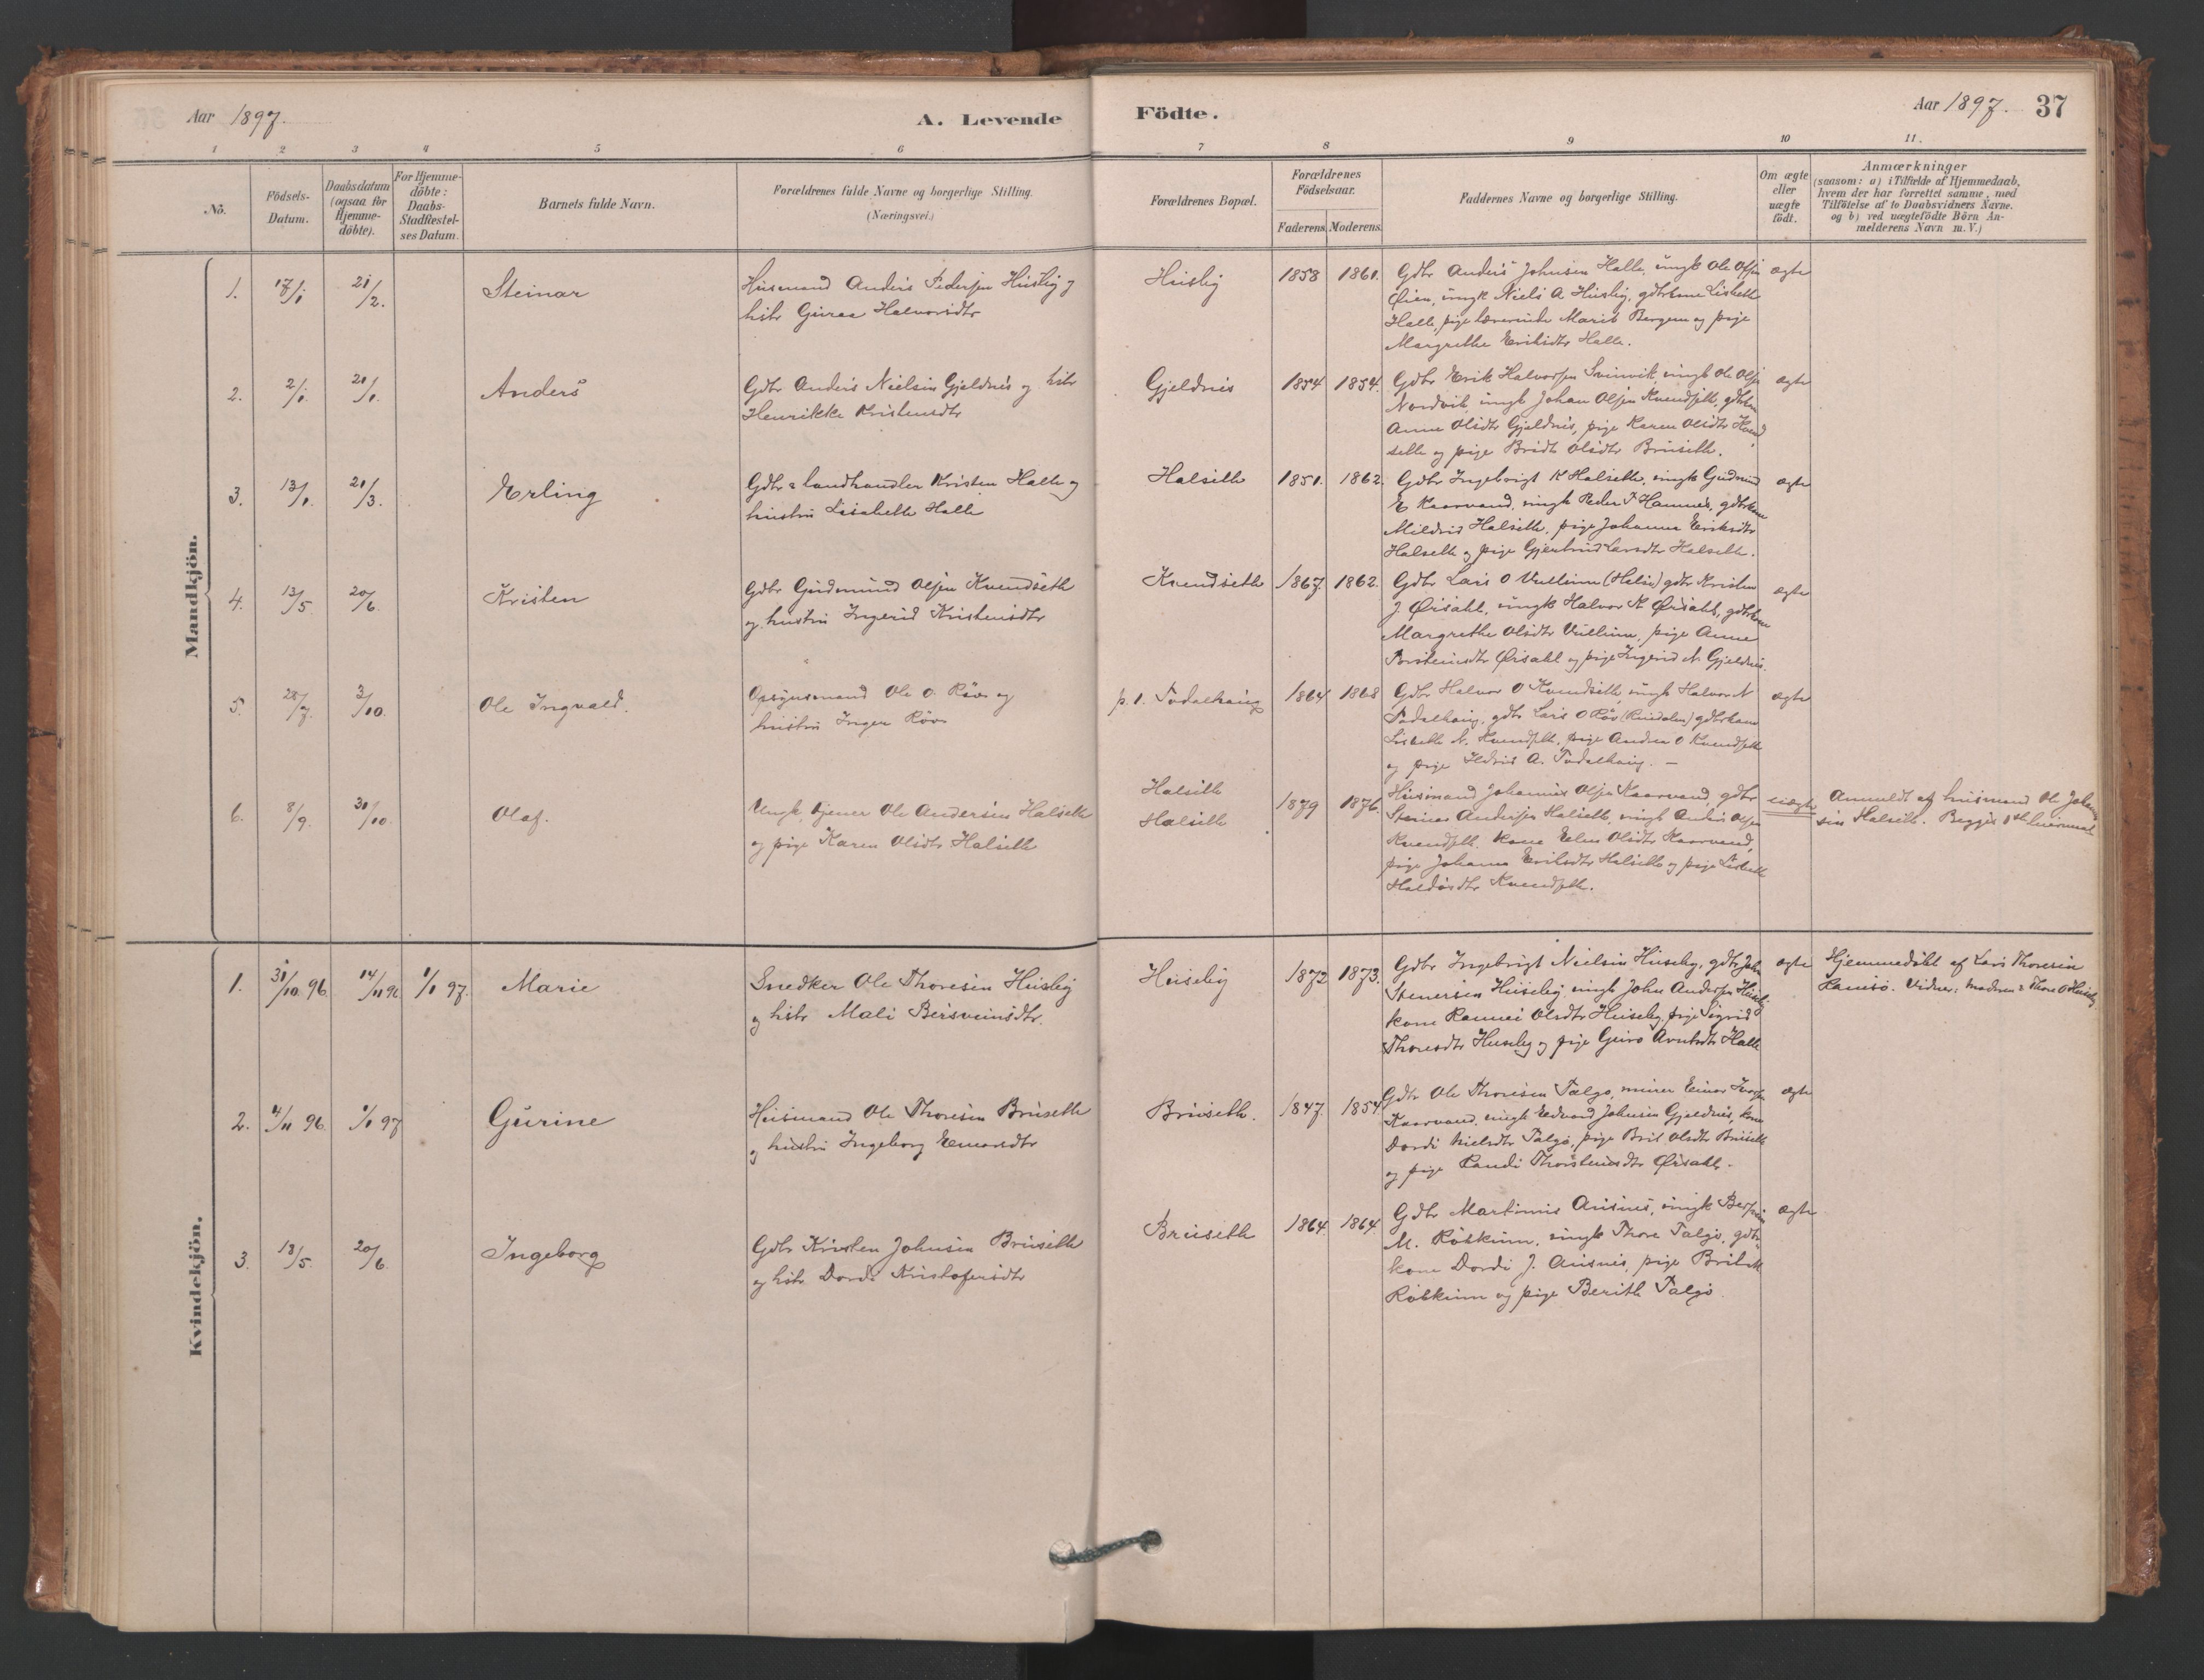 Aar 1897.
A. Levende
Födte.
Aar 1897.
37
1 2 3 4 5 6 7 8 9 10 11.
No.
Födsels-
Datum.
Daabsdatum
(ogsaa for
Hjemme-
döbte).
For Hjemme-
döbte:
Daabs-
Stadfæstel-
ses Datum.
Barnets fulde Navn.
Forældrenes fulde Navne og borgerlige Stilling.
(Næringsvei.)
Forældrenes Bopæl.
Forældrenes
Födselsaar.
Faderens. Moderens.
Faddernes Navne og borgerlige Stilling.
Om ægte
eller
uægte
födt.
Anmærkninger
(saasom: a) i Tilfælde af Hjemmedaab,
hvem der har forrettet samme, med
Tilföielse af to Daabsvidners Navne.
og b) ved uægtefödte Börn An-
melderens Navn m. V.)
Mandkjön.
1. 17/1 21/2. Steinar
Husmand Anders Pedersen Husby og
hstr Guroe Halvorsdtr
Husby 1858 1861.
Gdbr Anders Johnsen Halle, ungk Ole Olsen
Øien, ungk Niels A Husby, gdbrkone Lisbeth
Halle, pige lærerinde Marit Bergem og pige
Margrethe Eriksdtr Halle.
ægte
2. 2/1. 21/1. Anders
Gdbr Anders Nielsen Gjeldnes og hstr
Henrikke Kristensdtr
Gjeldnes 1854 1854.
Gdbr Erik Halvorsen Svinvik, ungk Ole Olsen
Nordvik, ungk Johan Olsen Kvendseth, gdbrkone
Anne Olsdtr Gjeldnes, pige Karen Olsdtr Kvend
seth og pige Brødt Olsdtr Bruseth.
ægte
3. 13/1. 21/3. Erling
Gdbr & landhandler Kristen Halle og
hustru Lisabeth Halle
Halseth 1851. 1862.
Gdbr Ingebrigt K Halseth, ungk Gudmund
E Kaarvand, ungk Peder P Hamnes, gdbrkone
Mildrid Halseth, pige Johanna Eriksdtr
Halseth og pige Gjertrud Larsdtr Halseth.
ægte
4. 13/5. 20/6. Kristen
Gdbr Gudmund Olsen Kvendseth
og hustru Ingerid Kristensdtr
Kvendseth 1867. 1862.
Gdbr Lars O Vullum (Halse) gdbr Kristen
J. Ørsahl, ungk Halvor K Ørsahl, gdbrkone
Margrethe Olsdtr Vullum, pige Anne
Torstensdtr Ørsahl og pige Ingerid N. Gjeldnes.
ægte
5. 28/7. 3/10. Ole Ingvald.
Opsynsmand Ole O. Røv og
hustru Inger Røv
p. t. Todalhaug 1864 1868
Gdbr Halvor O Kvendseth, ungk Halvor N
Todalhaug, gdbr Lars O Røv (Rindalen) gdbrkone
Lisbeth N. Kvendseth, pige Andrea O Kvendseth
og pige Ildrid A. Todalhaug. —
ægte
6. 8/9. 31/10. Olaf.
Ungk. tjener Ole Andersen Halseth
og pige Karen Olsdtr Halseth
Halseth
Halseth
1879 1876.
Husmand Johannes Olsen Kaarvand, gdbr
Steinar Andersen Halseth, ungk Anders Olsen
Kvendseth, kone Elen Olsdtr Kaarvand,
pige Johanna Eriksdtr Halseth og pige Lisbeth
Haldorsdtr Kvendseth.
uægte
Anmeldt af husmand Ole Johan
sen Halseth. Begges 1ste leiermaal
Kvindekjön.
1. 31/10 96. 14/11 96 1/1 97. Marie
Snedker Ole Thoresen Husby
og hstr Mali Bersveinsdtr.
Huseby 1872 1873.
Gdbr Ingebrigt Nielsen Huseby, gdbr John
Stenersen Huseby, ungk John Andersen Huseby
kone Rannei Olsdtr Huseby, pige Sigrid
Thoresdtr Huseby og pige Guro Arntsdtr Halle
ægte
Hjemmedöbt af Lars Thoresen
Ramsö. Vidner: Moderen & Thore O Huseby
2. 4/11 96. 1/1 97 Gurine
Husmand Ole Thoresen Bruseth
og hustru Ingeborg Einarsdtr
Bruseth. 1847. 1854
Gdbr Ole Thoresen Talgø, murer Einar Ivarsen
Kaarvand, ungk Edvard Johnsen Gjeldnes, kone
Dordi Nielsdtr Talgø, pige Brit Olsdtr Bruseth
og pige Randi Thorstensdtr Ørsahl.
ægte
3. 13/5. 20/6. Ingeborg
Gdbr Kristen Johnsen Bruseth
og hstr. Dordi Kristofersdtr
Bruseth 1864. 1864.
Gdbr Martinus Ausnes, ungk Bersvein
M. Røkkum, ungk Thore Talgø, gdbr
kone Dordi J. Ausnes, pige Brit M
Røkkum og pige Berith Talgø.
ægte